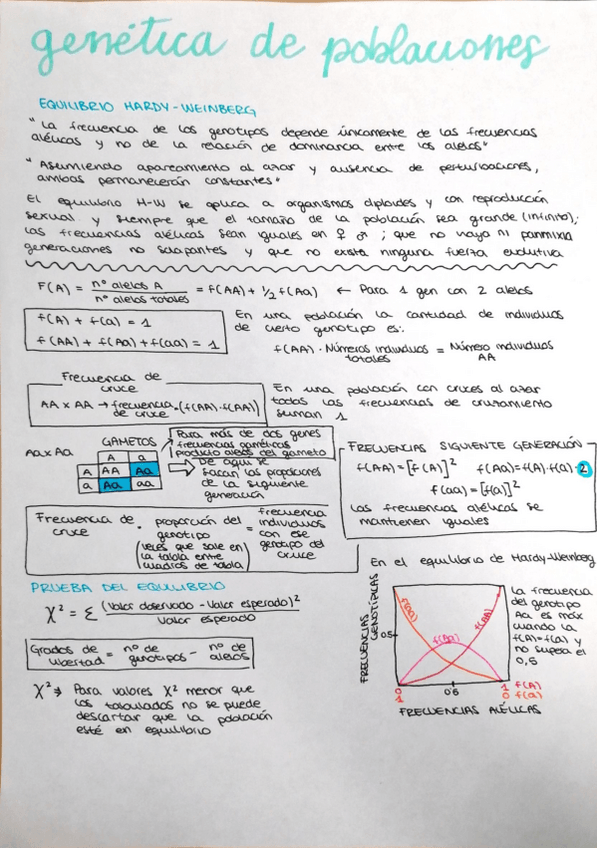 genética de poblaciones
EQUILIBRIO HARDY-WEINBERG
"La frecuencia de los genotipos depende únicamente de las frecuencias
alélicas y no de la relación de dominancia entre los alelos"
"Asumiendo apareamiento al azar y ausencia de perturbaciones,
ambas permanecerán constantes"
El equilibrio H-W se aplica a organismos diploides y con reproducción
sexual y siempre que el tamaño de la población sea grande (infinito);
las frecuencias alélicas sean iguales en ♀ ♂ ; que no haya ni panmixia
generaciones no solapantes y que no exista ninguna fuerza evolutiva
F(A) = nº alelos A / nº alelos totales = f(AA) + 1/2 f(Aa) ← Para 1 gen con 2 alelos
f(A) + f(a) = 1
f(AA) + f(Aa) + f(aa) = 1
En una población la cantidad de individuos
de cierto genotipo es:
f(AA) · Números individuos totales = Número individuos AA
Frecuencia de
cruce
AA x AA → frecuencia de cruce = (f(AA)·f(AA))
En una población con cruces al azar
todas las frecuencias de cruzamiento
suman 1
Aa x Aa
GAMETOS
A a
A AA Aa
a Aa aa
Para más de dos genes
frecuencias gaméticas
Producto alelos del gameto
De aquí se
sacan las proporciones
de la siguiente
generación
FRECUENCIAS SIGUIENTE GENERACIÓN
f(AA) = [f(A)]² f(Aa) = f(A)·f(a)·2
f(aa) = [f(a)]²
Las frecuencias alélicas se
mantienen iguales
Frecuencia de cruce · proporción del genotipo = frecuencia individuos con ese genotipo del cruce
(veces que sale en
la tabla entre
cuadros de tabla)
PRUEBA DEL EQUILIBRIO
χ² = Σ (Valor observado - Valor esperado)² / Valor esperado
Grados de libertad = nº de genotipos - nº de alelos
χ² → Para valores χ² menor que
los tabulados no se puede
descartar que la población
esté en equilibrio
En el equilibrio de Hardy-Weinberg
FRECUENCIAS
GENOTÍPICAS
0'5
f(aa)
f(Aa)
f(AA)
0 0'5 1 f(A)
1 0 f(a)
FRECUENCIAS ALÉLICAS
La frecuencia
del genotipo
Aa es máx
cuando la
f(A)=f(a) y
no supera el
0,5